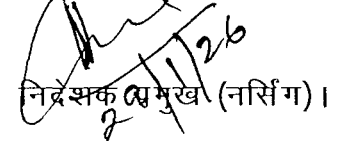 20/1/26
निदेशक प्रमुख (नर्सिंग)।